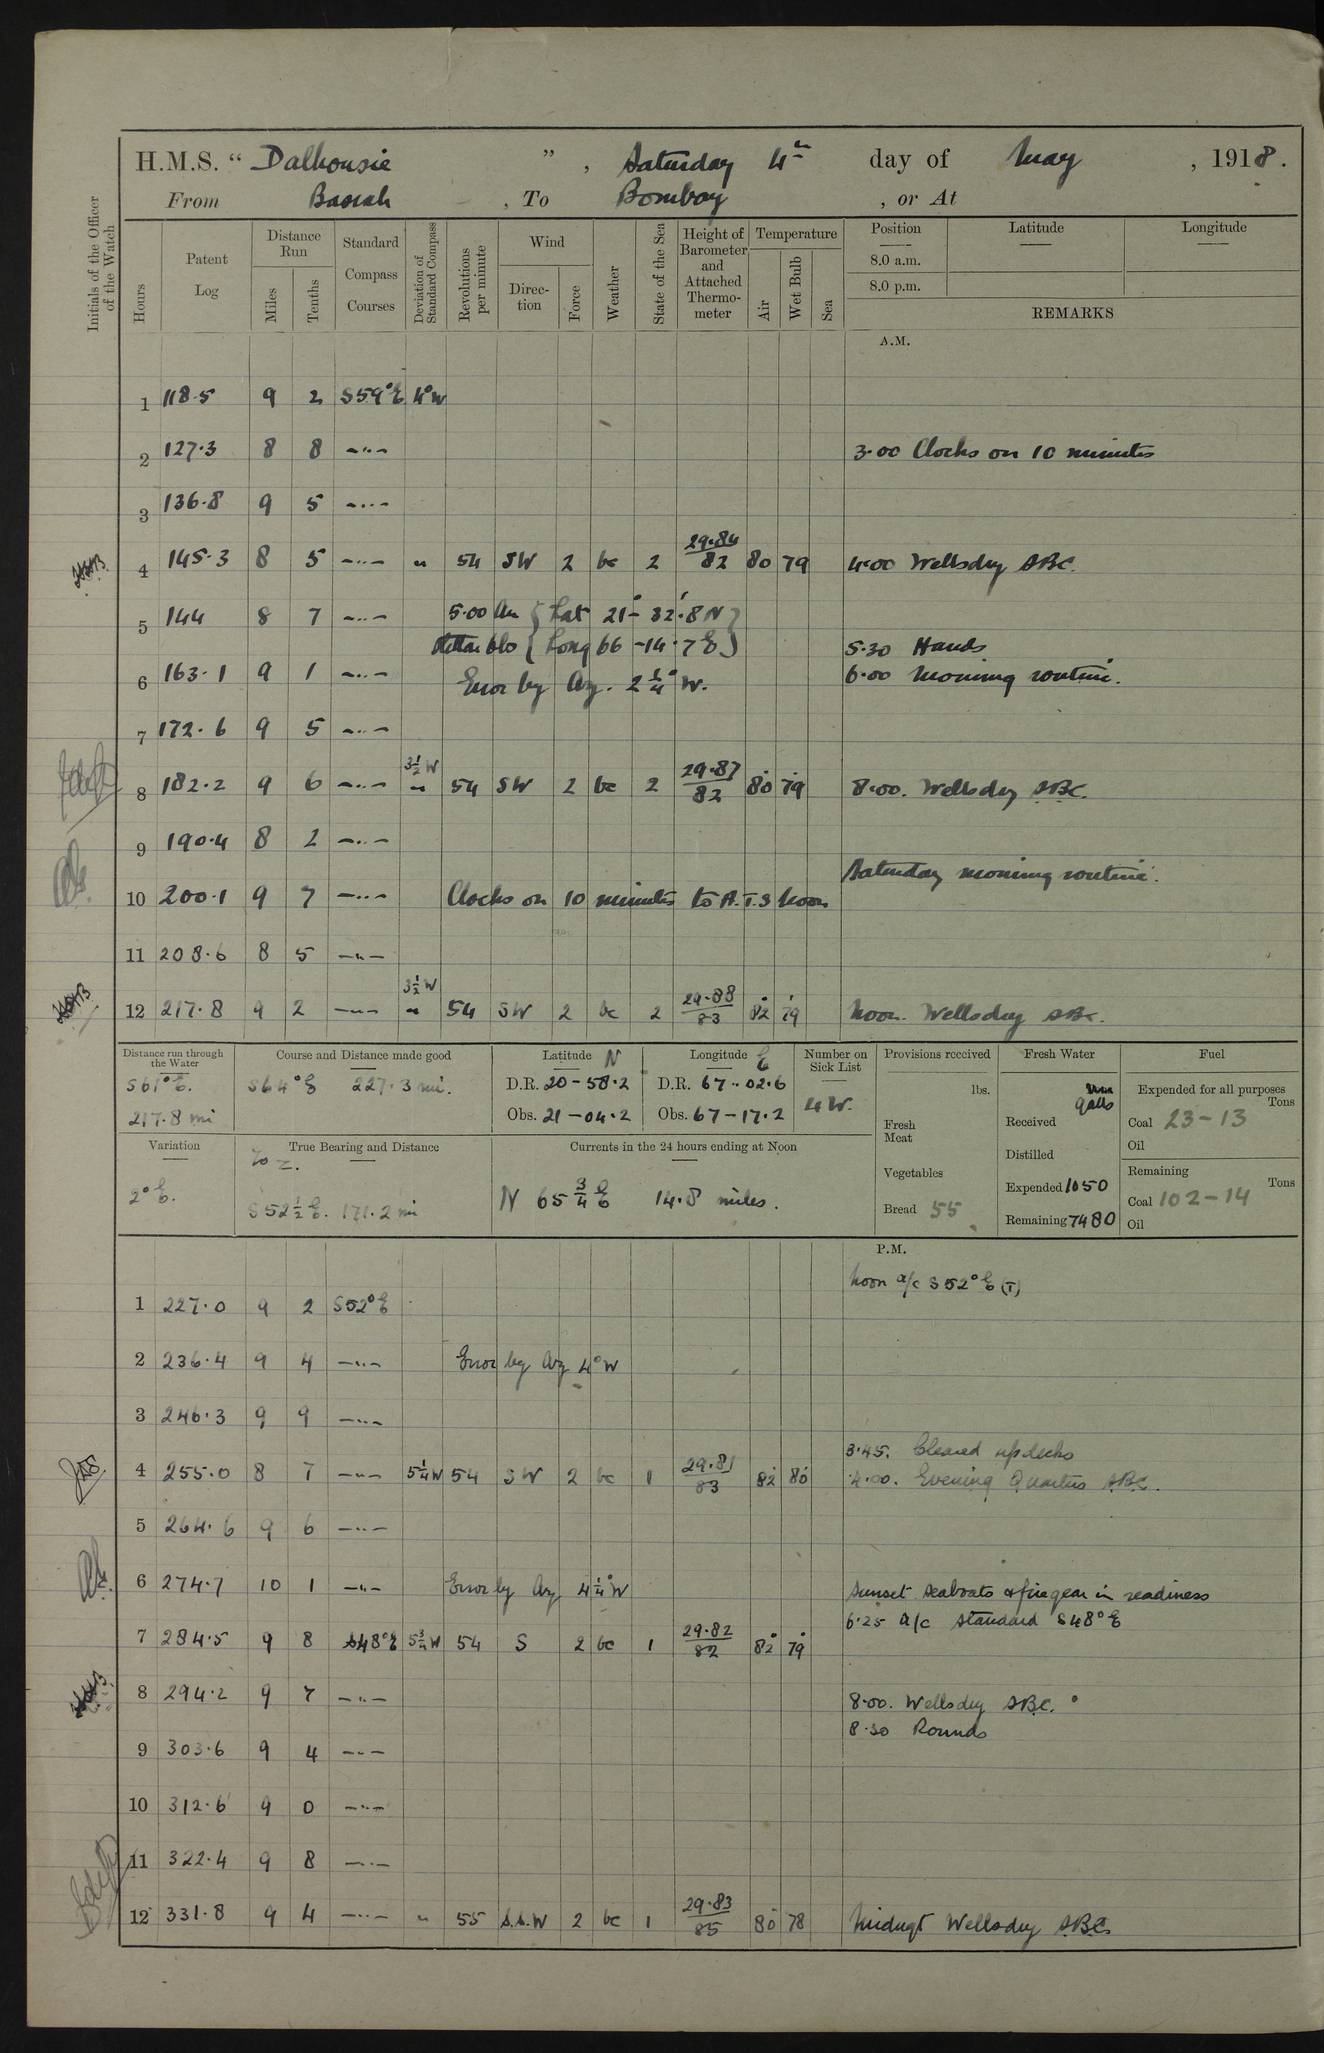 H.M.S. “ Dalhousie ” , Saturday 4th day of May , 1918.
From Basrah , To Bombay , or At
Initials of the Officer of the Watch
Hours
Patent Log
Distance Run
Miles Tenths
Standard Compass Courses
Deviation of Standard Compass
Revolutions per minute
Wind
Direction Force
Weather
State of the Sea
Height of Barometer and Attached Thermometer
Temperature
Air Wet Bulb Sea
Position Latitude Longitude
8.0 a.m.
8.0 p.m.
REMARKS
A.M.
1 118.5 9 2 S59°E 4°W
2 127.3 8 8 —"— 3.00 Clocks on 10 minutes
3 136.8 9 5 —"—
4 145.3 8 5 —"— " 54 SW 2 bc 2 29.84/82 80 79 4.00 Wellsdry SBC.
5 144 8 7 —"— 5.00 Am { Lat 21°-32'.8 N }
{ Long 66-14.7 E } 5.30 Hands
6 163.1 9 1 —"— Error by Az. 2¼° W. 6.00 Morning routine.
7 172.6 9 5 —"—
8 182.2 9 6 —"— 3½W " 54 SW 2 bc 2 29.87/82 80 79 8.00. Wellsdry SBC.
9 190.4 8 2 —"—
Saturday morning routine.
10 200.1 9 7 —"— Clocks on 10 minutes to A.T.S noon
11 208.6 8 5 —"—
12 217.8 9 2 —"— 3½W " 54 SW 2 bc 2 29.88/83 82 79 Noon. Wellsdry SBC.
Distance run through the Water
S61°E.
217.8 mi
Course and Distance made good
S64°E 227.3 mi.
Latitude N
D.R. 20-58.2
Obs. 21-04.2
Longitude E
D.R. 67-02.6
Obs. 67-17.2
Number on Sick List
4 W.
Provisions received
lbs.
Fresh Meat
Vegetables
Bread 55
Fresh Water
galls
Received
Distilled
Expended 1050
Remaining 7480
Fuel
Expended for all purposes
Tons
Coal 23-13
Oil
Remaining
Tons
Coal 102-14
Oil
Variation
2°E.
True Bearing and Distance
to Z.
S52½E. 171.2 mi
Currents in the 24 hours ending at Noon
N 65¾E 14.8 miles.
P.M.
Noon a/c S52°E (T)
1 227.0 9 2 S52°E
2 236.4 9 4 —"— Error by Az 4°W
3 246.3 9 9 —"—
3.45. Cleared up decks
4 255.0 8 7 —"— 5¼W 54 SW 2 bc 1 29.81/83 82 80 4.00. Evening Quarters SBC.
5 264.6 9 6 —"—
6 274.7 10 1 —"— Error by Az 4¼°W Sunset Seaboats & fire gear in readiness
6.25 a/c Standard S48°E
7 284.5 9 8 S48°E 5¾W 54 S 2 bc 1 29.82/82 82 79
8 294.2 9 7 —"— 8.00. Wellsdry SBC.
8.30 Rounds
9 303.6 9 4 —"—
10 312.6 9 0 —"—
11 322.4 9 8 —"—
12 331.8 9 4 —"— " 55 S.S.W 2 bc 1 29.83/85 80 78 Midngt Wellsdry SBC.